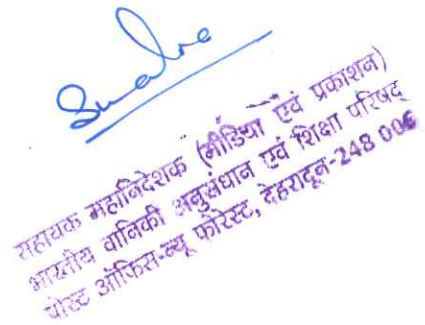 सहायक महानिदेशक (मीडिया एवं प्रकाशन)
भारतीय वानिकी अनुसंधान एवं शिक्षा परिषद्
पोस्ट ऑफिस-न्यू फोरेस्ट, देहरादून-248 006